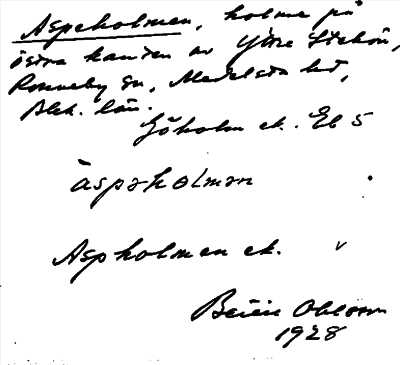 Aspeholmen, holme på
östra kanten av Yttre Stekön,
Ronneby sn, Medelsta hd,
Blek. län.
Sjökolm ek. Eb 5
äspəholmən
Aspholmen ek. v
Bror Ohlsson
1928